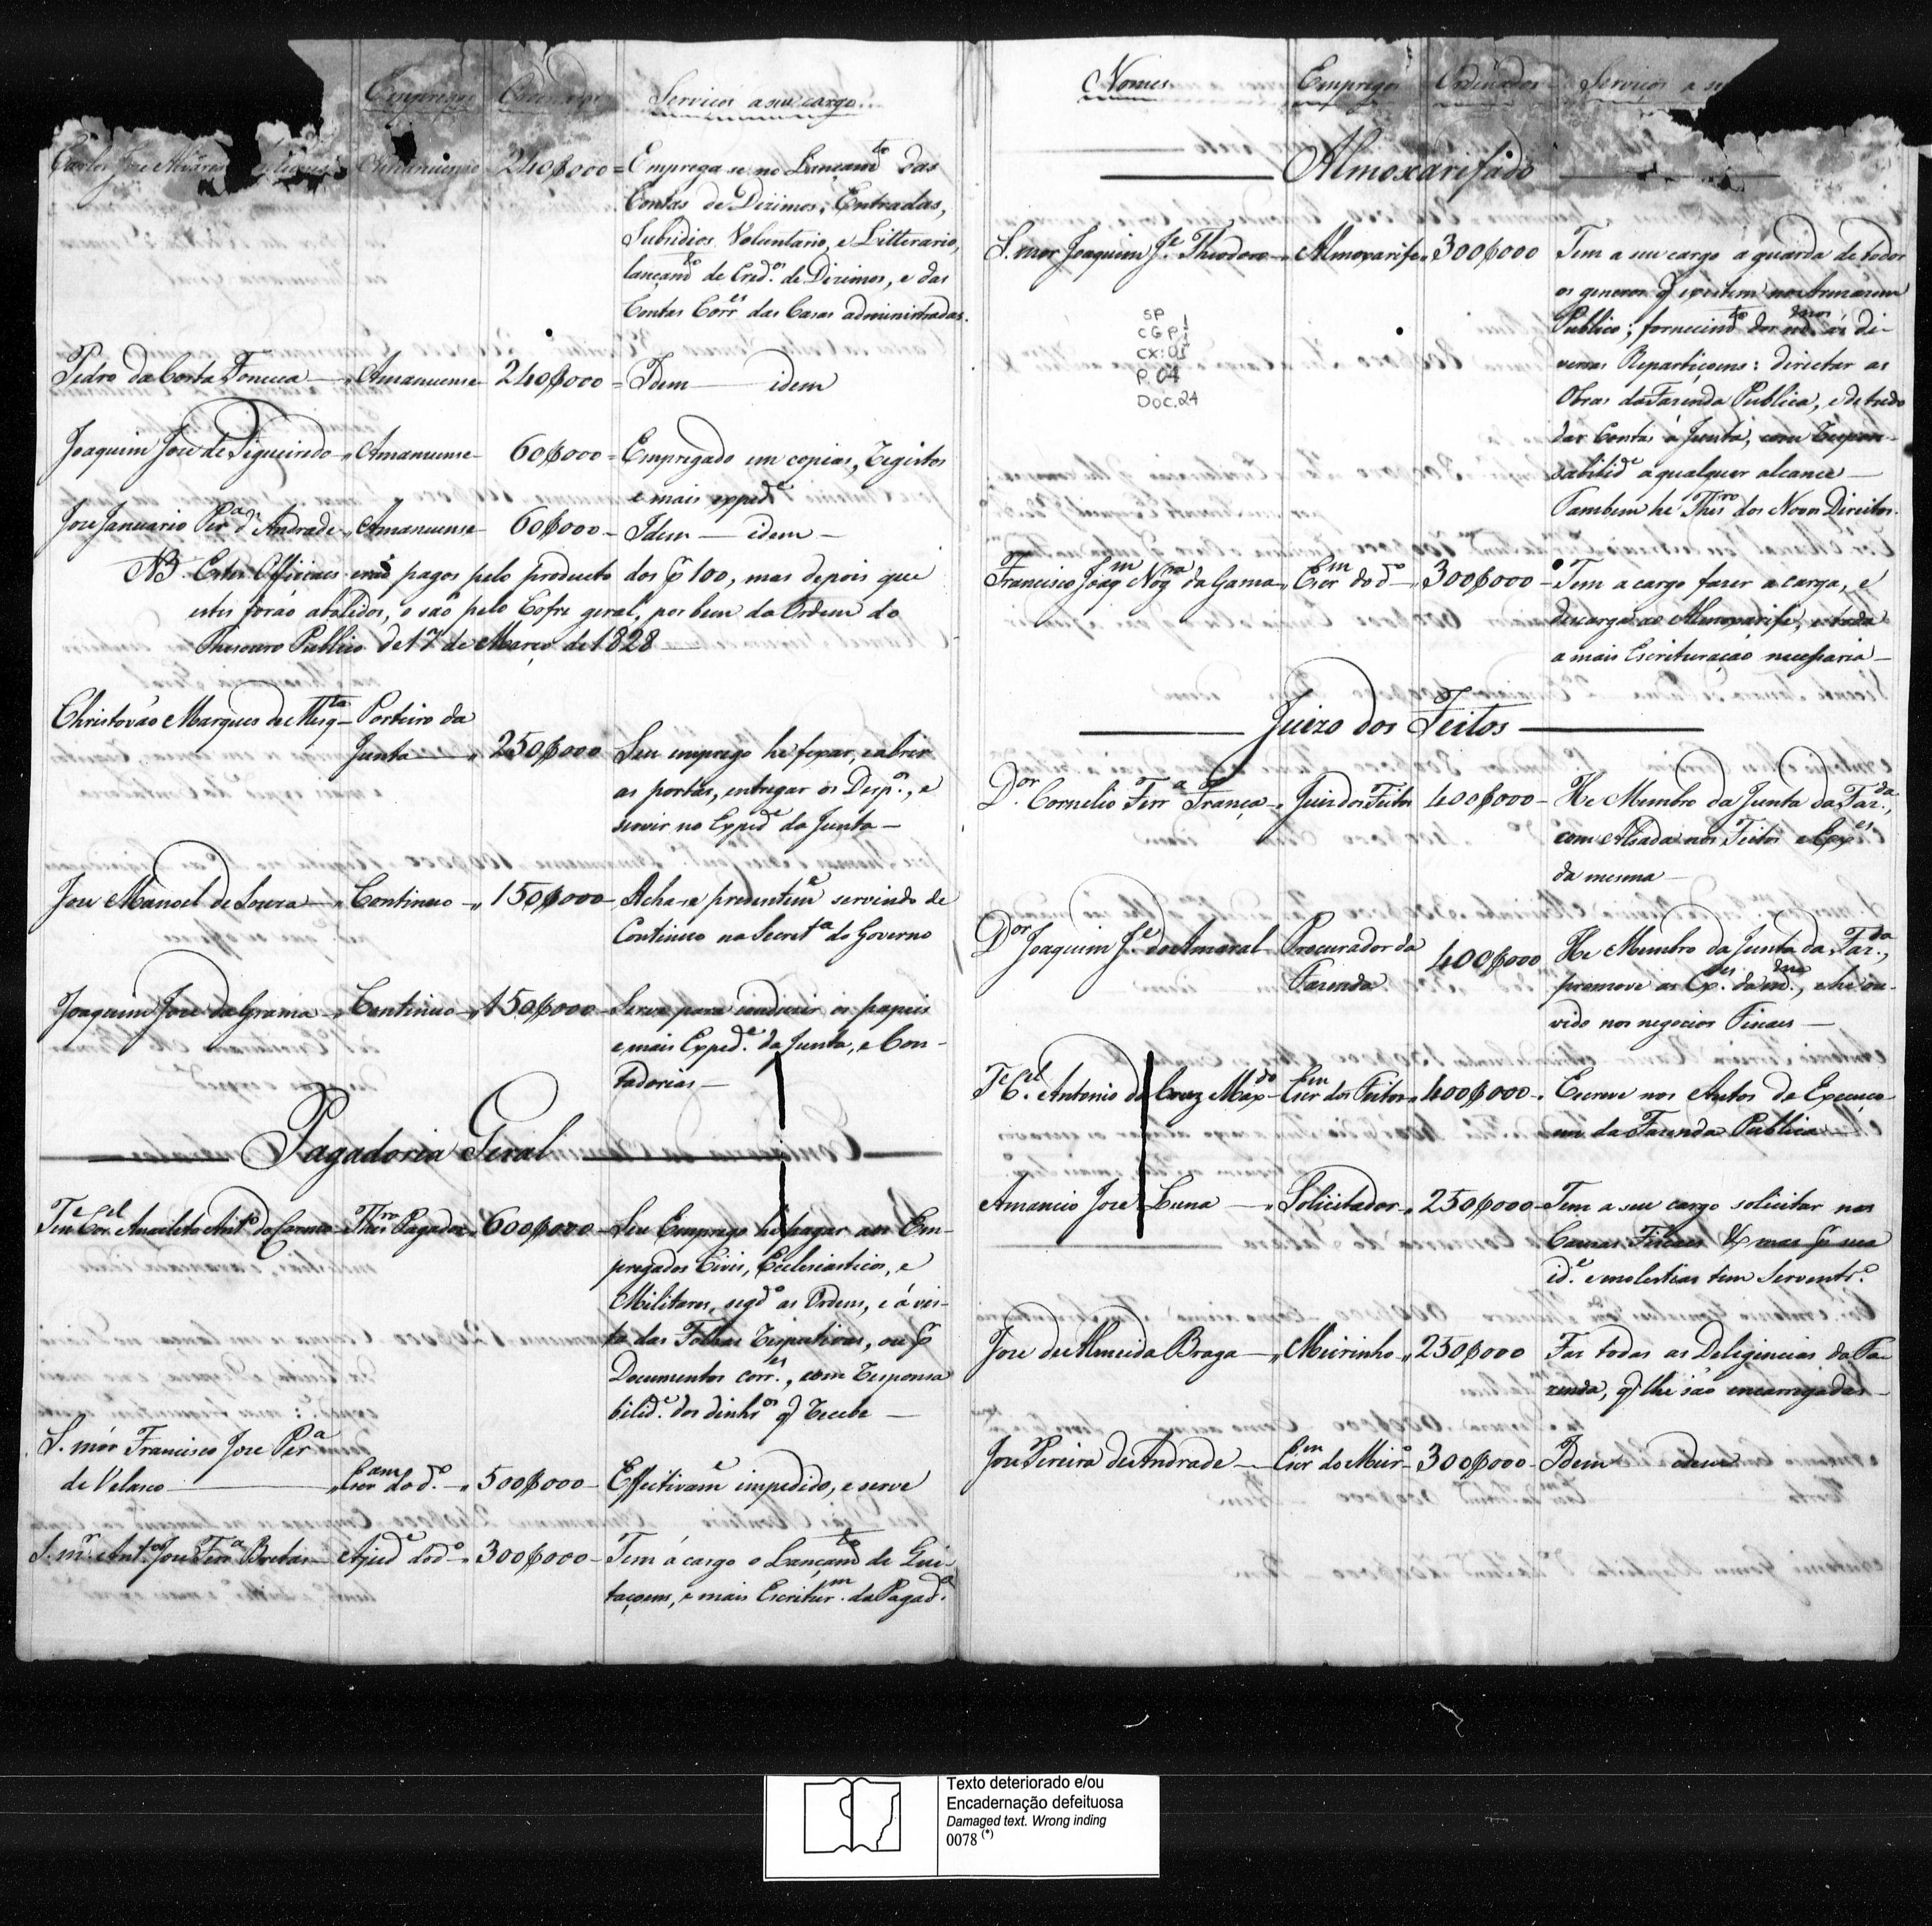 Empregos Ordenados Serviços a seu cargo
Carlos Jose Alvares Amanuense 240$000 = Emprega se no Lançamto das
Contas de Dizimos, Entradas,
Subsidios Voluntario, e Litterario,
lançamto de Credos de Dizimos, e das
Contas Corres das Casas administradas.
Pedro da Costa Fonseca — Amanuense 240$000 = Idem — idem
Joaquim Jose de Figueiredo — Amanuense 60$000 = Empregado em copias, Registos
e mais expede
Jose Januario Pera d'Andrade — Amanuense 60$000 — Idem — idem —
NB Estes Officiaes erão pagos pelo producto dos p 100, mas depois que
estes forão abolidos, o são pelo Cofre geral, por bem da Ordem do
Thesouro Publico de 17 de Março de 1828 —
Christovão Marques de Mesqta — Porteiro da
Junta — 250$000 Seu emprego he fexar, e abrir
as portas, entregar os Despos, e
servir no Expede da Junta —
Jose Manoel de Souza — Continuo — 150$000 — Acha-se presenteme servindo de
Continuo na Secreta do Governo
Joaquim Jose da Grama — Continuo — 150$000 — Serve para conduzir os papeis
e mais Expede da Junta, e Con-
tadorias —
Pagadoria Geral
Te Cel Anacleto Anto do Carmo — Thro Pagador — 600$000 — Seu Emprego he pagar aos Em-
pregados Civis, Ecclesiasticos, e
Militares, segdo as Ordens, e á vis-
ta das Folhas respectivas, ou p
Documentos corres, com responsa
bilide dos dinhros q recebe —
S. mór Francisco Jose Pera
de Velasco — Escram do do — 500$000 — Effectivame impedido, e serve
S. mr Anto Jose Ferra Bretas — Ajude do do — 300$000 — Tem á cargo o Lançamto de Qui-
taçoens, e mais Escriturm da Pagada
Nomes Empregos Ordenados Serviços a se
Almoxarifado
S. mor Joaquim Je Theodoro — Almoxarife 300$000 Tem a seu cargo a guarda de todos
os generos q existem no Armazem
Publico; fornecimto dos mmos ás di-
versas Repartiçoens: directar as
Obras da Fazenda Publica, e de tudo
dar Contas á Junta, com respon-
sabilide a qualquer alcance —
Tambem he Thesro dos Novos Direitos.
SP 1
CGP 1
CX: 01
P. 04
DOC. 24
Francisco Joaqm Nogra da Gama — Escrm do do — 300$000 — Tem a cargo fazer a carga, e
descarga ao Almoxarife, e toda
a mais Escrituração necessaria —
Juizo dos Feitos
Dor Cornelio Ferra França — Juiz dos Feitos 400$000 — He Membro da Junta da Fazda,
com Alsada nos Feitos e Expes
da mesma —
Dor Joaquim Je do Amaral Procurador da 400$000 He Membro da Junta da Fazda,
Fazenda promove as Exes da mma, e he ou-
vido nos negocios Fiscaes —
Te Cel Antonio da Cruz Maxdo Escrm dos Feitos 400$000 — Escreve nos Autos de Execuço-
ens da Fazenda Publica —
Amancio Jose Luna — Solicitador 250$000 — Tem a seu cargo solicitar nas
Causas Fiscaes & mas p sua
ide e molestias tem Serventro
Jose de Almeida Braga — Meirinho 250$000 Faz todas as Deligencias da Fa
zenda, q lhe são encarregadas —
Jose Pereira de Andrade — Escrm do Meiro 300$000 — Idem idem
Texto deteriorado e/ou
Encadernação defeituosa
Damaged text. Wrong inding
0078 (*)